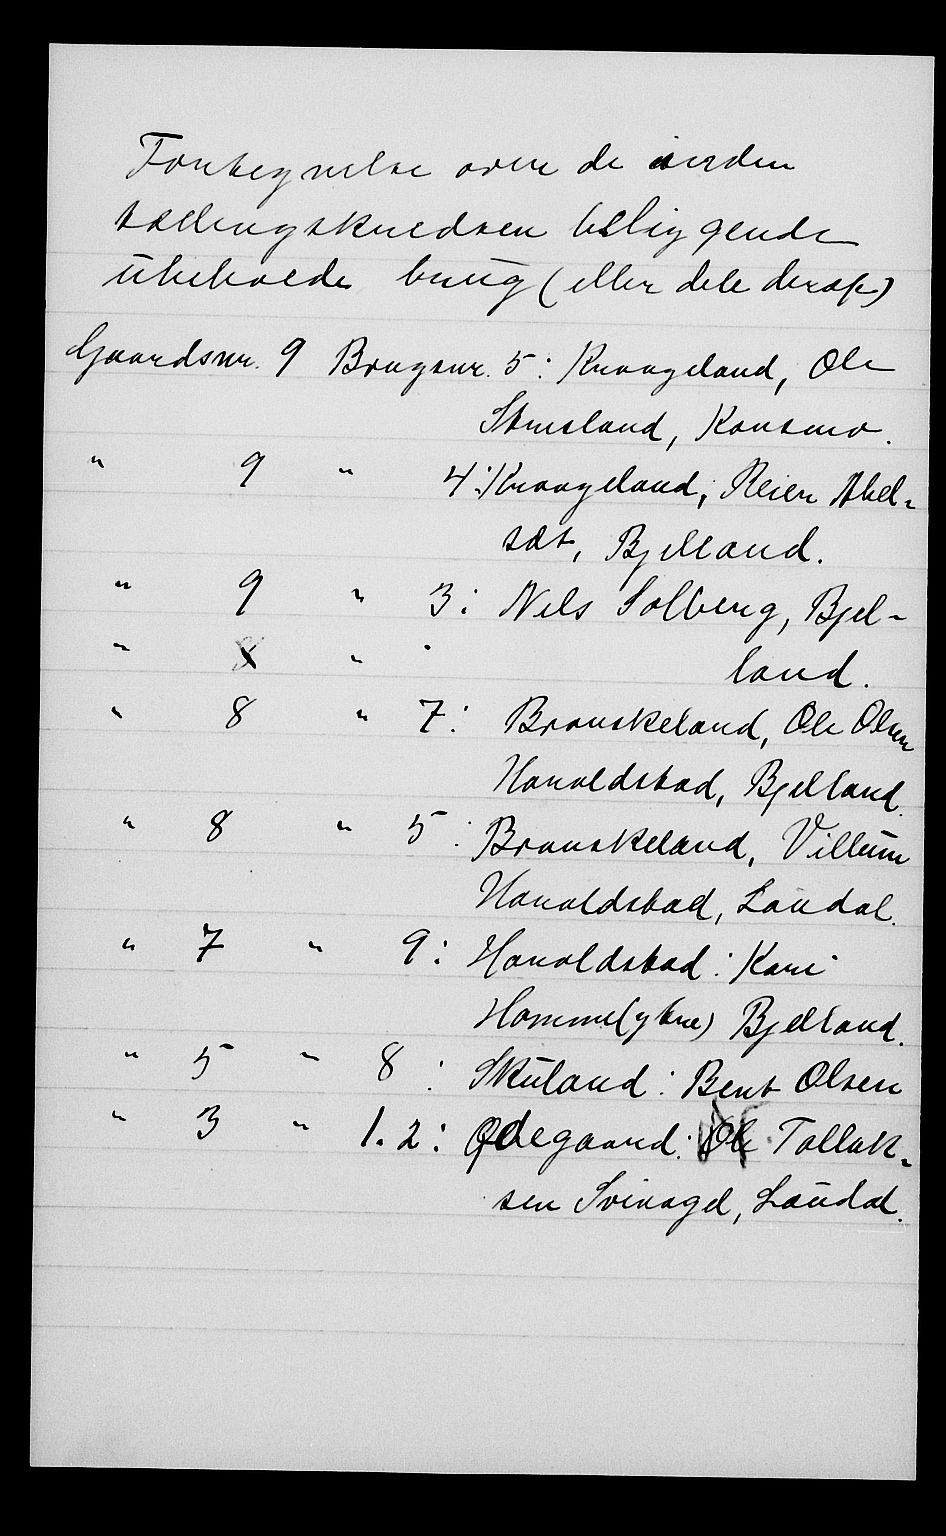 Fortegnelse over de i verden
tællingskredsen beliggende
ubeboede brug (eller dele deraf)
Gaardsnr. 9 Brugsnr. 5: Kraageland, Ole
Stuesland, Konsmo.
" 9 " 4: Kraageland, Reier Abel-
sæt, Bjelland.
" 9 " 3: Nils Solberg, Bjel-
" 8 " land.
" 8 " 7: Brauskeland, Ole Olsen
Haraldstad, Bjelland.
" 8 " 5: Brauskeland, Villum
Haraldstad, Laudal.
" 7 " 9: Haraldstad: Kari
Homme (ytre) Bjelland.
" 5 " 8: Skuland: Bent Olsen
" 3 " 1.2: Ødegaard: Ole Tallak-
sen Svinagel, Laudal.